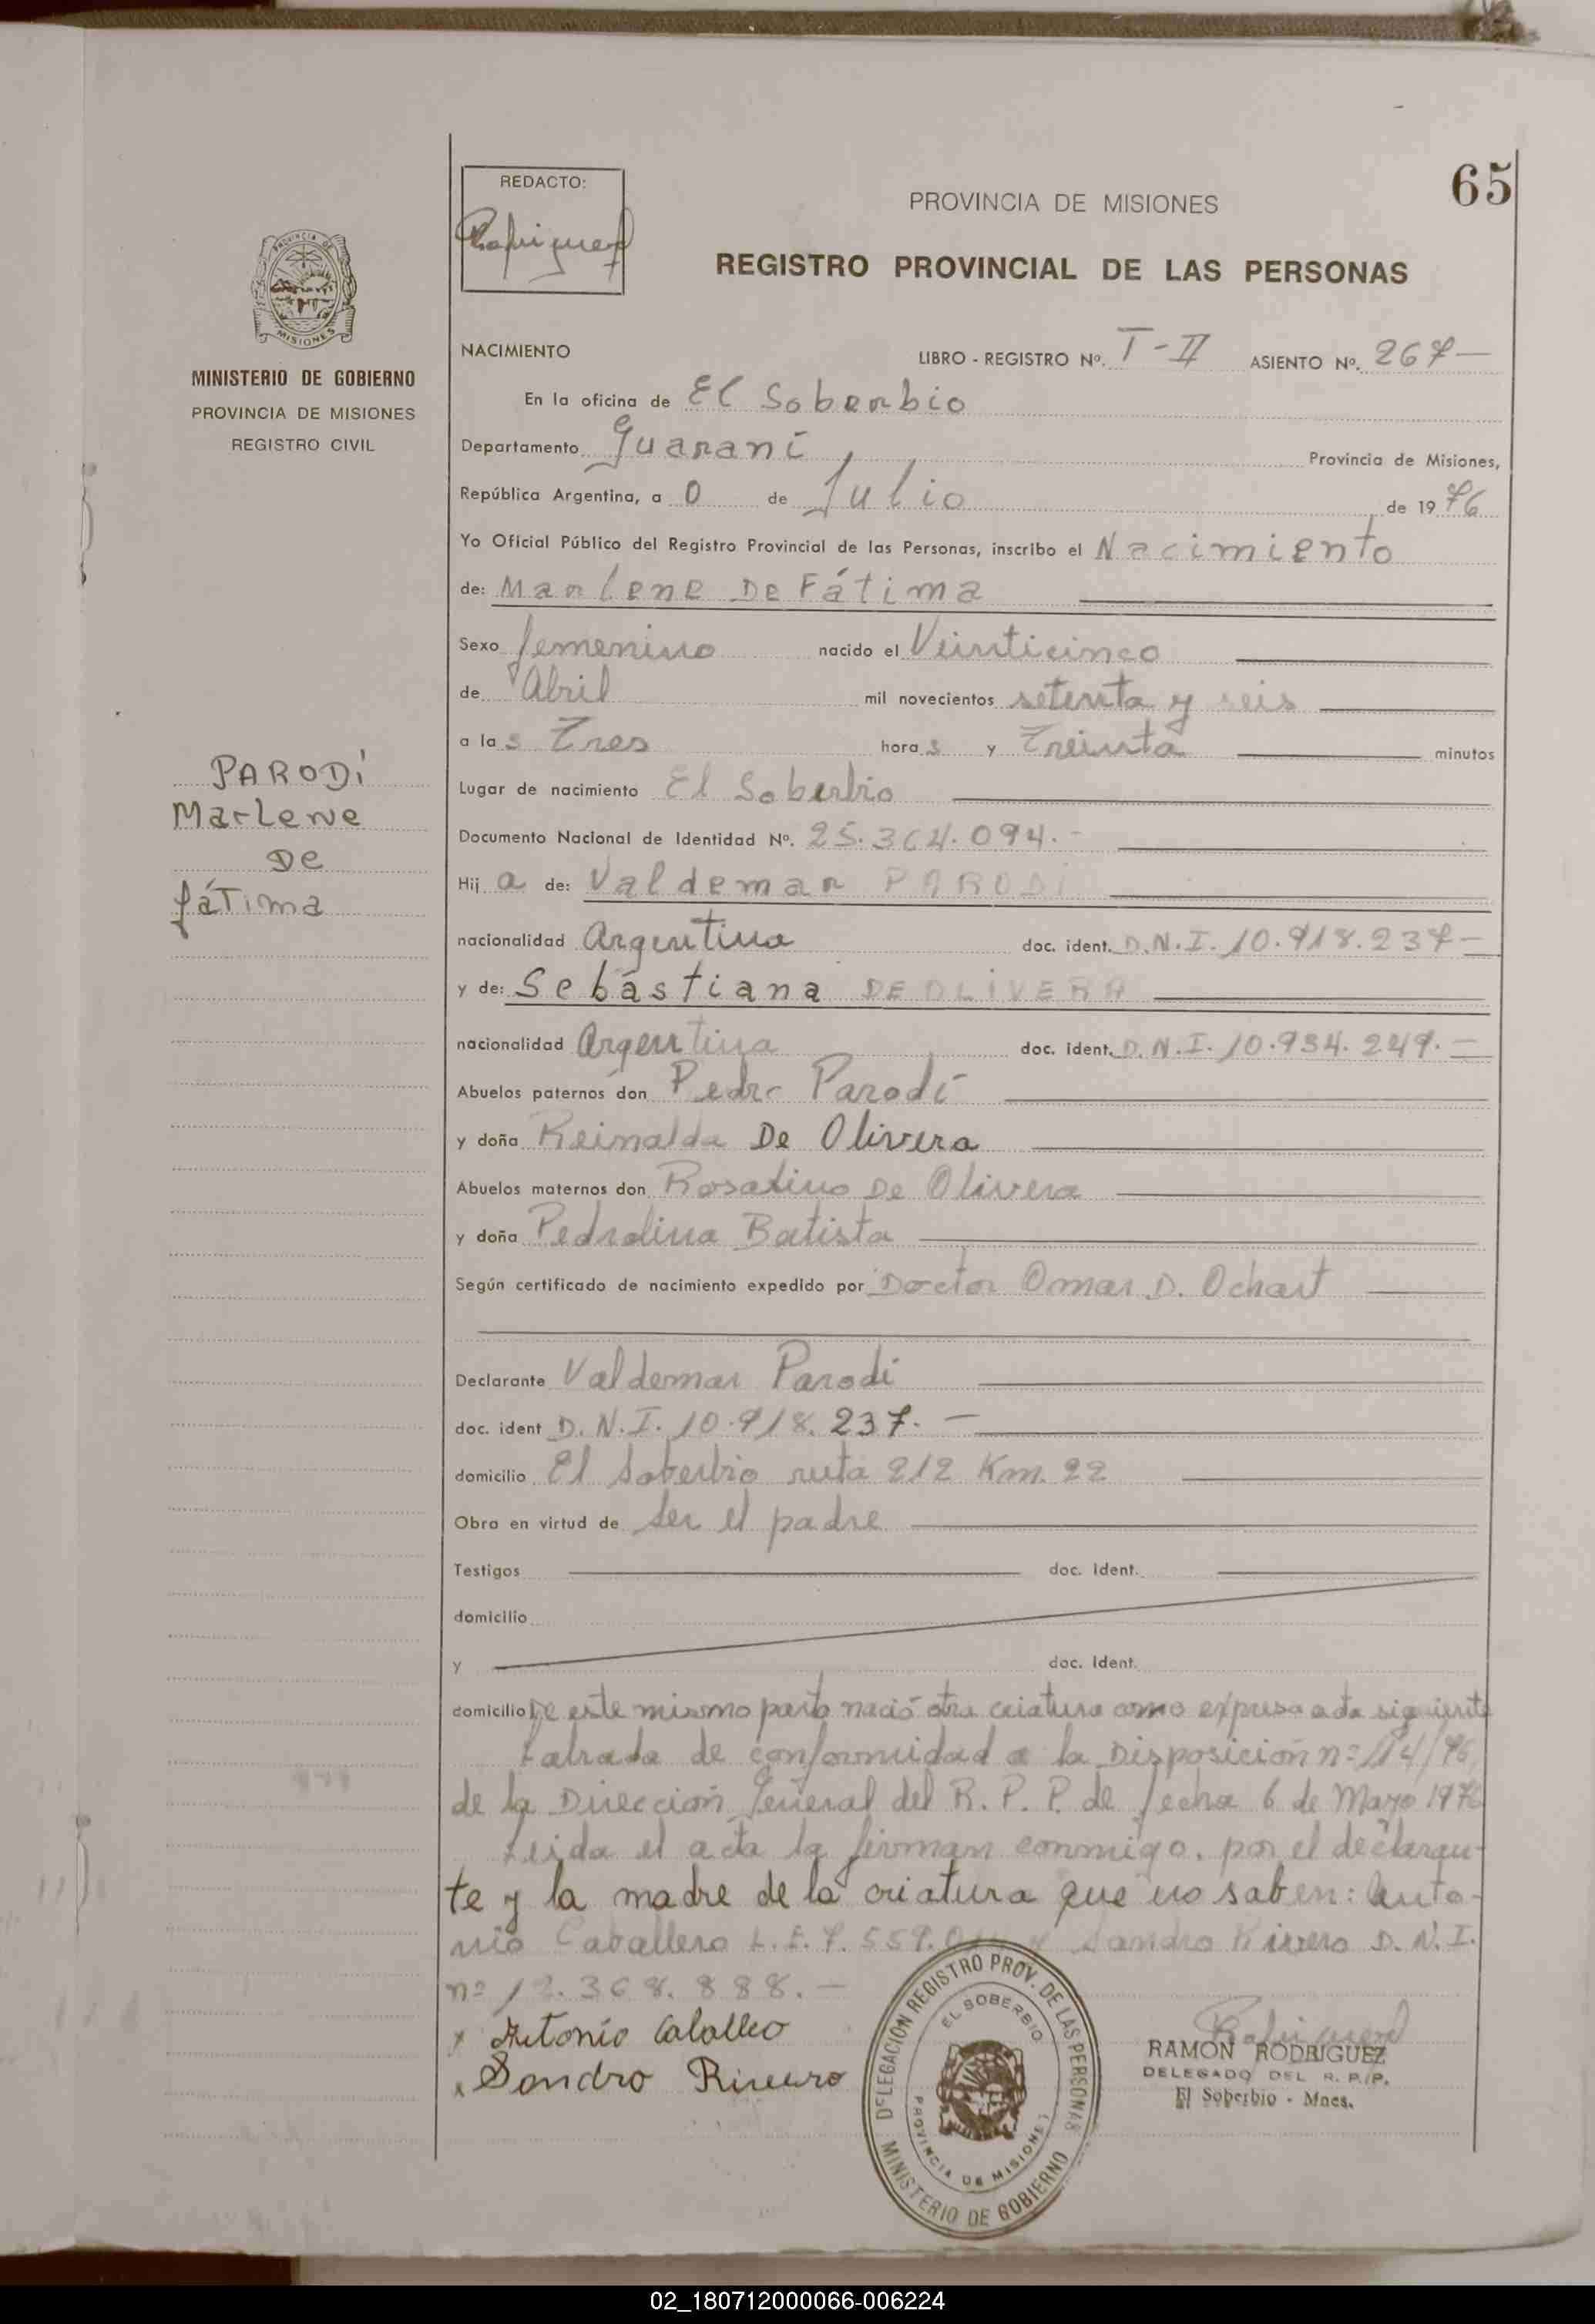 65
REDACTO:
Rodriguez
PROVINCIA DE MISIONES
REGISTRO PROVINCIAL DE LAS PERSONAS
PROVINCIA DE
MISIONES
MINISTERIO DE GOBIERNO
PROVINCIA DE MISIONES
REGISTRO CIVIL
PARODI
Marlene
De
fátima
NACIMIENTO LIBRO - REGISTRO Nº. T-II ASIENTO Nº. 267
En la oficina de El Soberbio
Departamento Guaraní Provincia de Misiones,
República Argentina, a 0 de Julio de 1976
Yo Oficial Público del Registro Provincial de las Personas, inscribo el Nacimiento
de: Marlene De Fátima
Sexo femenino nacido el Veinticinco
de Abril mil novecientos setenta y seis
a las Tres horas y Treinta minutos
Lugar de nacimiento El Soberbio
Documento Nacional de Identidad Nº. 25.364.094.-
Hija de: Valdemar PARODI
nacionalidad Argentina doc. ident. D.N.I. 10.918.237-
y de: Sebastiana DE OLIVERA
nacionalidad Argentina doc. ident. D.N.I. 10.934.249.-
Abuelos paternos don Pedro Parodi
y doña Reinalda De Olivera
Abuelos maternos don Rosalino De Olivera
y doña Pedrolina Batista
Según certificado de nacimiento expedido por Doctor Omar D. Ochart
Declarante Valdemar Parodi
doc. ident D.N.I. 10.918.237.-
domicilio El Soberbio ruta 212 Km. 22
Obra en virtud de ser el padre
Testigos doc. ident.
domicilio
y doc. ident.
domicilio De este mismo parto nació otra criatura como expresa acta siguiente
Labrada de conformidad a la Disposición nº 114/76
de la Dirección General del R. P. P. de fecha 6 de Mayo 1976
Leida el acta la firman conmigo, por el declaran-
te y la madre de la criatura que no saben: Anto-
nio Caballero L.E. 7.559. y Sandro Rivero D.N.I.
nº 12.368.888.-
x Antonio Caballero
x Sandro Rivero
DELEGACION REGISTRO PROV. DE LAS PERSONAS
EL SOBERBIO
PROVINCIA DE MISIONES
MINISTERIO DE GOBIERNO
Rodriguez
RAMON RODRIGUEZ
DELEGADO DEL R. P. P.
El Soberbio - Mnes.
02_180712000066-006224